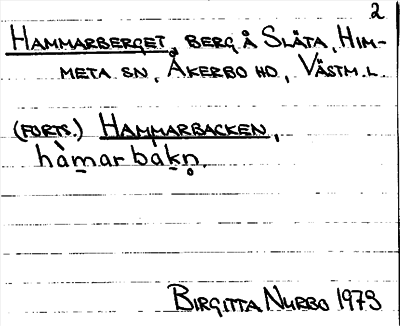 2
HAMMARBERGET, BERG Å SLÄTA, HIM-
META SN, ÅKERBO HD, VÄSTM.L
(FORTS.) HAMMARBACKEN,
hàm̱ar baḵn̥.
BIRGITTA NURBO 1973